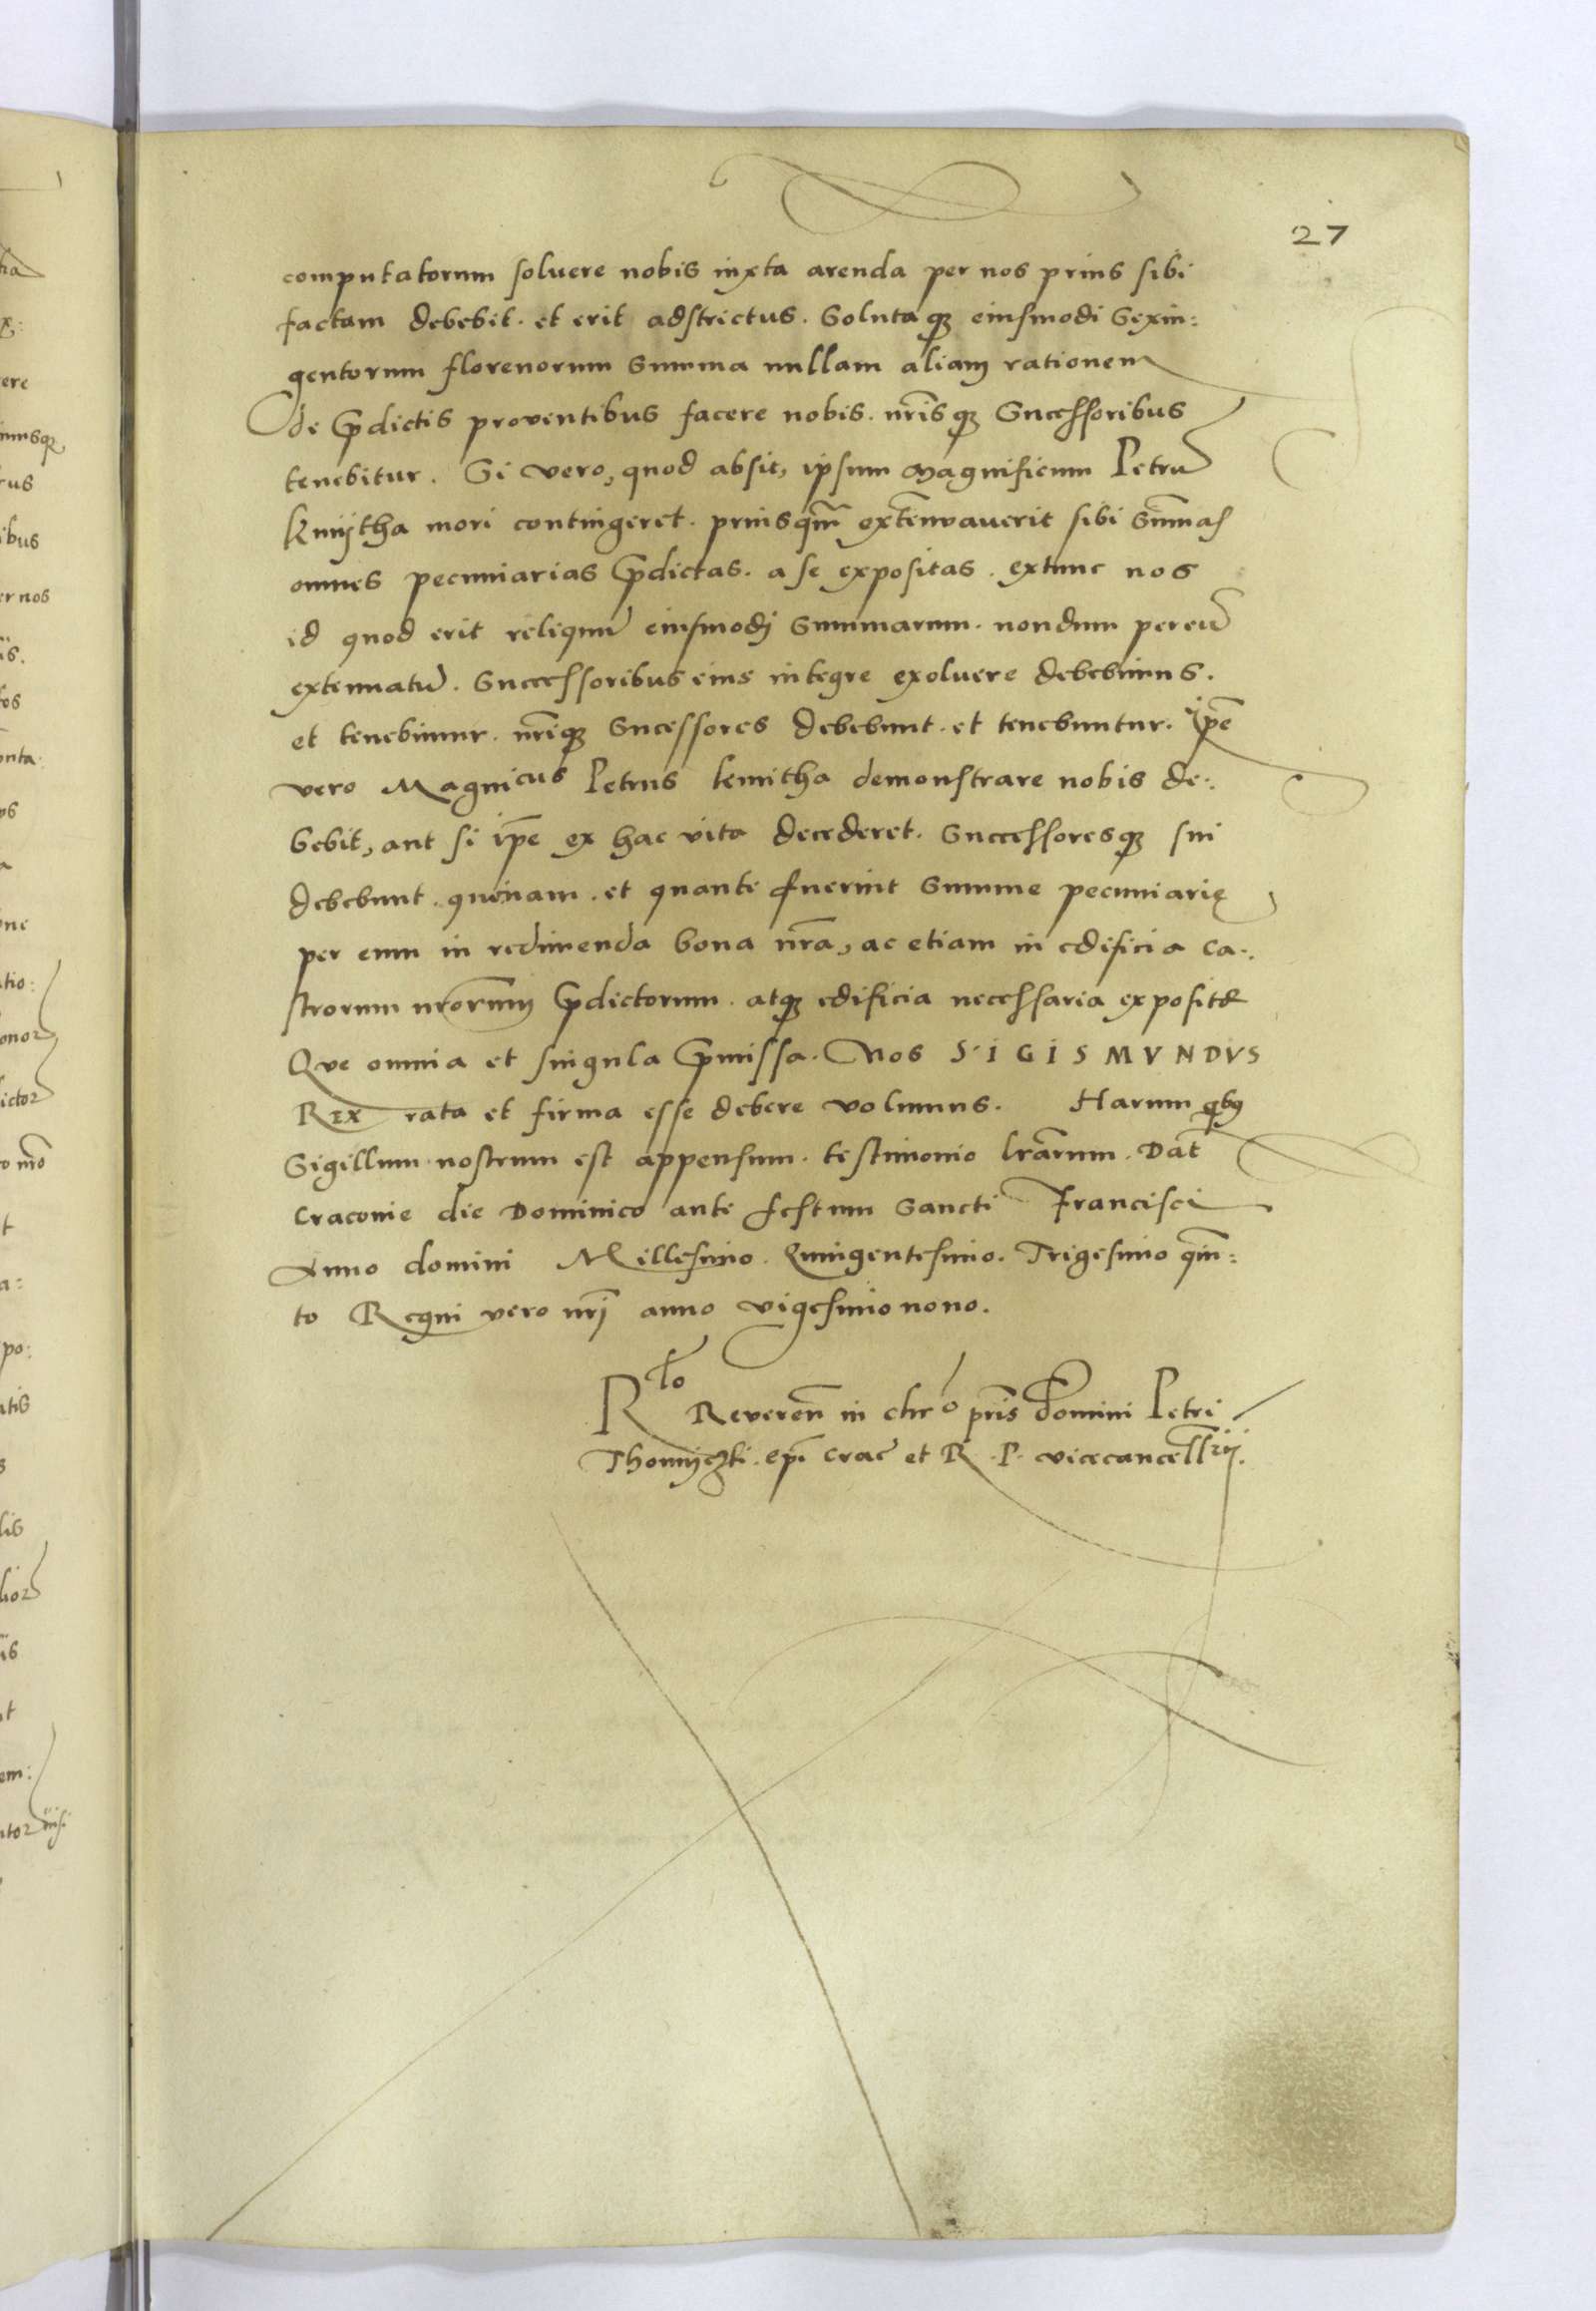 27
computatorum soluere nobis iuxta arenda per nos prius sibi
factam debebit. et erit adstrictus. Solutaq̃ eiusmodi Sexin:
gentorum florenorum Summa nullam aliam rationem
de p̃dictis proventibus facere nobis. nr̃isq̃ Successoribus
tenebitur. Si vero, quod absit, ipsum Magnificum Petrũ
kmijtha mori contingeret. priusq̃m extenvaverit sibi Sum̃as
omnes pecuniarias p̃dictas. a se expositas. extunc nos
id quod erit reliquũ eiusmodi Summarum. nondum per eũ
extenuatũ. Successoribus eius integre exoluere debebimus.
et tenebimur. nr̃iq̃ Sucessores debebunt. et tenebuntur. Ip̃e
vero Magnicus Petrus kmitha demonstrare nobis de:
bebit, aut si ip̃e ex hac vita decederet. Successoresq̃ sui
debebunt. quenam. et quante fuerint Summe pecuniarię
per eum in redimenda bona nr̃a, ac etiam in edificia ca:
strorum nr̃orum p̃dictorum. atq̃ edificia necessaria exposite
Que omnia et singula p̃missa. Nos SIGISMVNDVS
REX rata et firma esse debere volumus. Harum qbꝰ
Sigillum nostrum est appensum. testimonio lr̃arum. Dat̃
Cracovie die Dominico ante festum Sancti Francisci
Anno domini Millesimo. Quingentesimo. Trigesimo qũi:
to Regni vero nr̃i anno vigesimo nono.
R͠lo Reveren̄ in chr̃o pr̃is Domini Petri
Thomiczki. ep̃i Crac̃ et R. P. vicecancell̃rij.